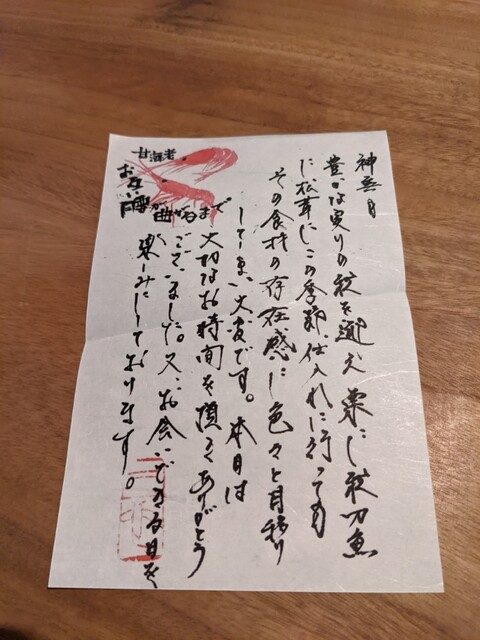 神無月
豊かな実りの秋を迎え 栗に秋刀魚
に松茸にこの季節、仕入れに行っても
その食材の存在感に色々と目移り
してしまい大変です。本日は
大切なお時間を頂きありがとう
ございました。又、お会いできる日を
楽しみにしております。
甘海老
お互い腰が曲がるまで